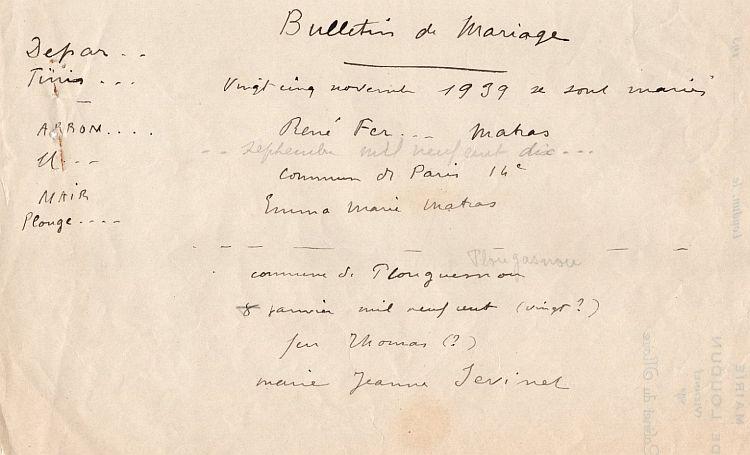 Bulletin de Mariage
Depar . .
Tinis . . .
Vingt cinq novembre 1939 se sont mariés
ARRON. . . .
René Fer . . . Matras
-- septembre mil neuf cent dix - - -
commune de Paris 14e
MAIR
Emma Marie Matras
Plouge . . . .
Plougasnou
commune de Plouguesnou
8 janvier mil neuf cent (vingt?)
feu Thomas (?)
marie Jeanne
MAIRIE
DE LOUDUN
Cabinet du Maire
Loudun, le